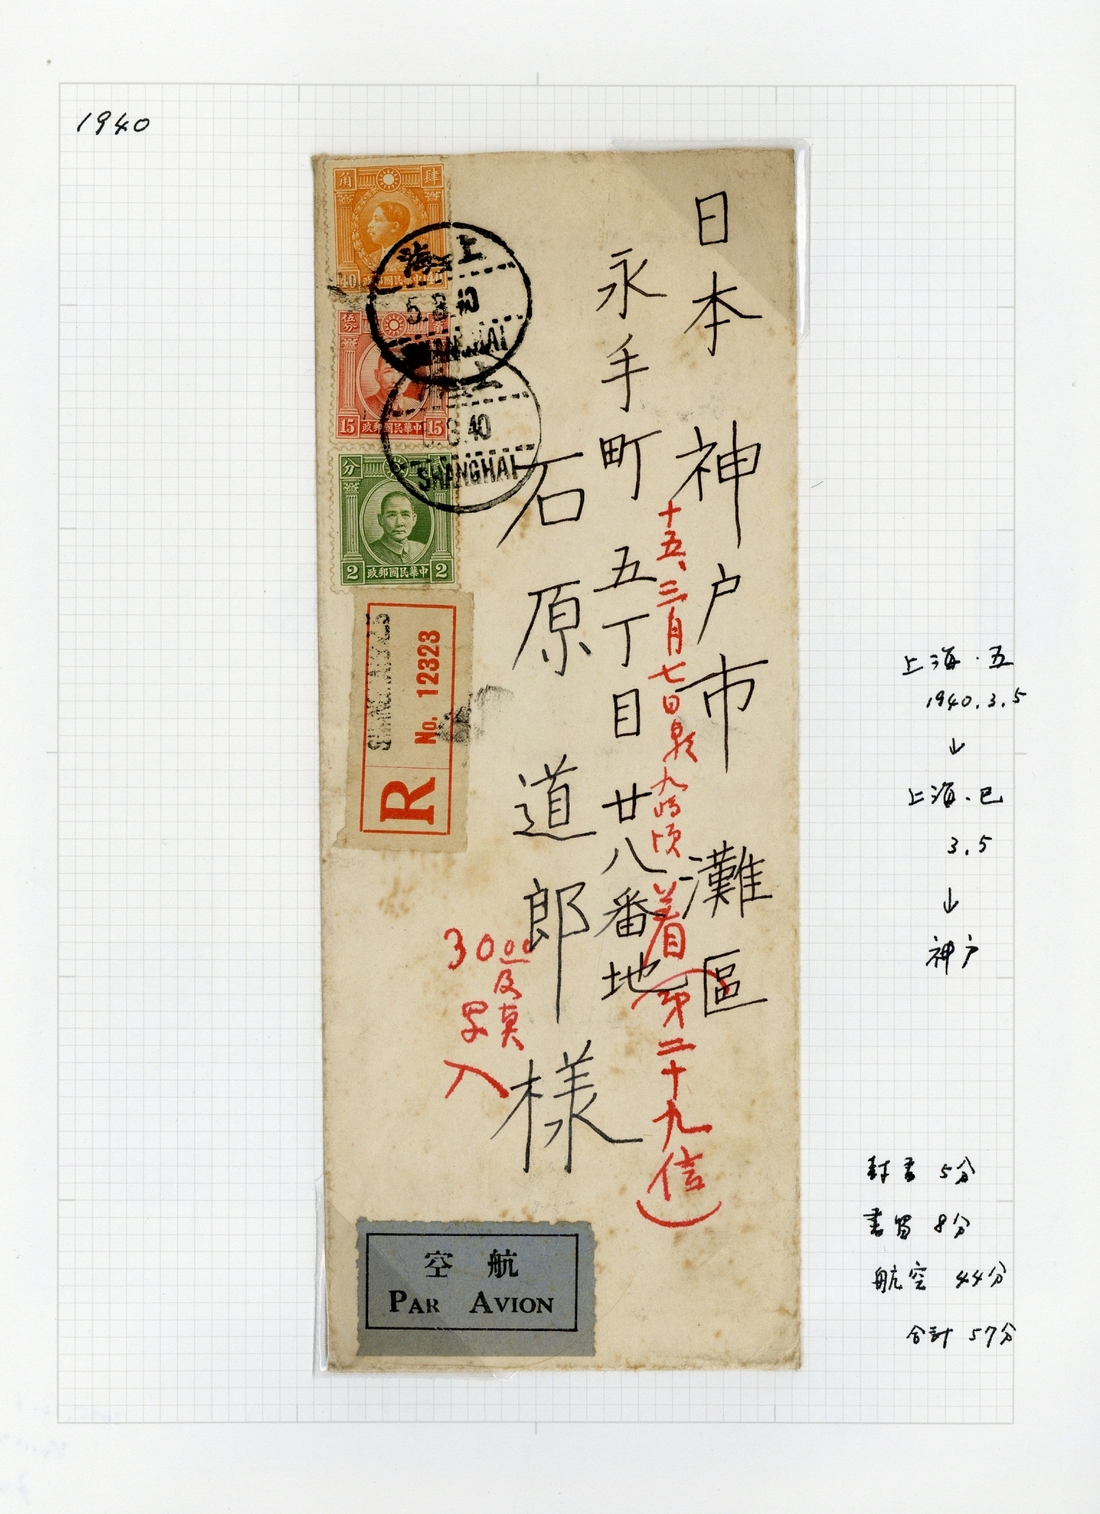 1940
肆 角
40 政郵國民華中 40
伍分 壹
15 政郵國民華中 15
分
2 政郵國民華中 2
海上
5.3.40
SHANGHAI
海上
5.3.40
SHANGHAI
SHANGHAI
No. 12323
R
日本 神戸市 灘區
永手町五丁目廿八番地
石原道郎様
十五、三月七日泉九時頃着(第二十九信)
3000
入
航空
PAR AVION
上海.五
1940.3.5
↓
上海.巳
3.5
↓
神戸
封書 5分
書留 8分
航空 44分
合計 57分